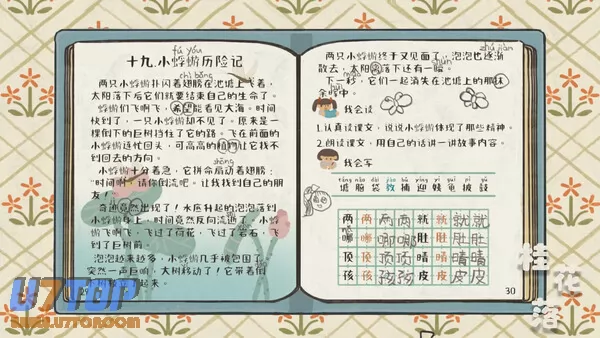 fú yóu
十九.小蜉蝣历险记
chì bǎng
两只小蜉蝣扑闪着翅膀在池塘上飞着,
太阳落下后它们就要结束自己的生命了。
蜉蝣们飞啊飞,希望能看见大海。时间
快到了,一只小蜉蝣却不见了。原来是一
棵倒下的巨树挡住了它的路。飞在前面的
小蜉蝣连忙回头,可高高的植物让它找不
到回去的方向。
小蜉蝣十分着急,它拼命扇动着翅膀:
"时间啊!请你倒流吧。让我找到自己的朋
友!"
奇迹竟然出现了!水底升起的泡泡落到
小蜉蝣身上,时间竟然反向流逝。小蜉
蝣飞啊飞,飞过了荷花,飞过了岩石,飞
到了巨树前。
泡泡越来越多,小蜉蝣几乎被包围了。
突然一声巨响,大树移动了!它带着倒
起来。
zhú jiàn
两只小蜉蝣终于又见面了,泡泡也逐渐
散去,太阳落下还有一瞬。
下一秒,它们一起消失在池塘上的那抹
余晖中。
我会读
1.认真读课文,说说小蜉蝣体现了那些精神。
2.朗读课文,用自己的话讲一讲故事内容。
我会写
塘 脑 袋 教 捕 迎 姨 龟 披 鼓
两 两 两 两 就 就 就 就
哪 哪 哪 哪 肚 肚 肚 肚
顶 顶 顶 顶 晴 晴 晴 晴
孩 孩 孩 孩 皮 皮 皮 皮
30
桂花落
U7TOP